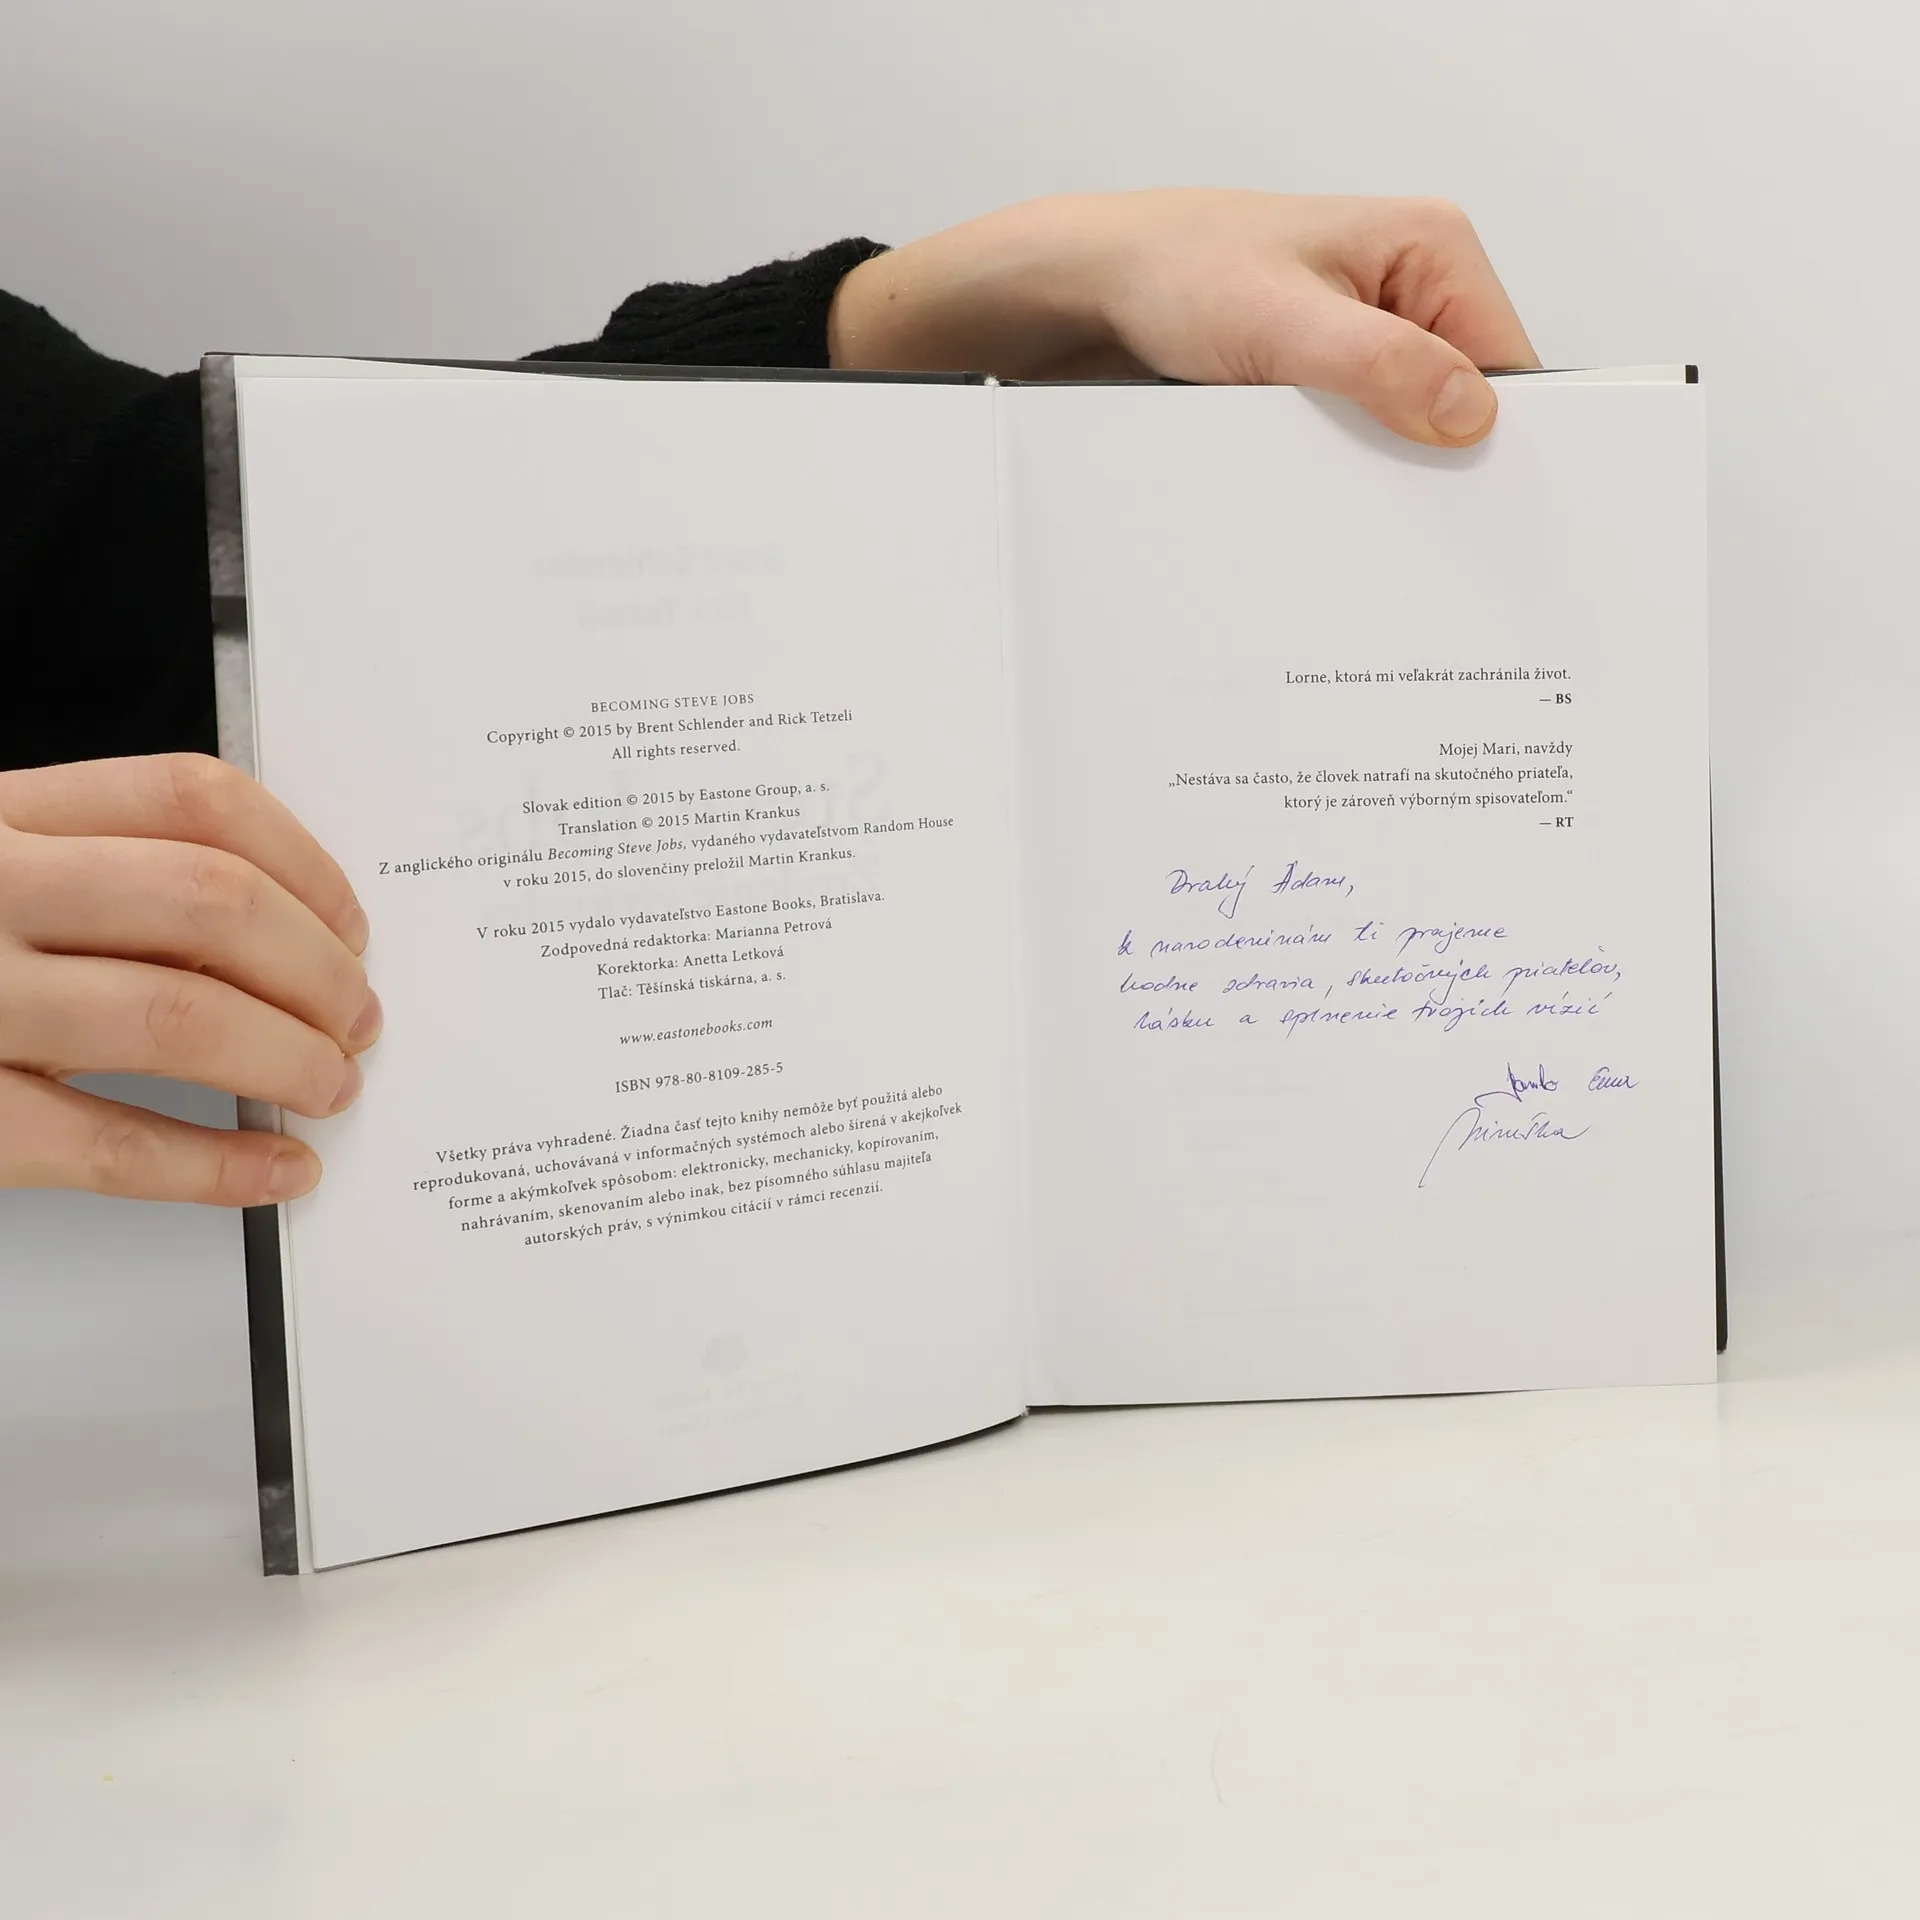 BECOMING STEVE JOBS
Copyright © 2015 by Brent Schlender and Rick Tetzeli
All rights reserved.
Slovak edition © 2015 by Eastone Group, a. s.
Translation © 2015 Martin Krankus
Z anglického originálu Becoming Steve Jobs, vydaného vydavateľstvom Random House
v roku 2015, do slovenčiny preložil Martin Krankus.
V roku 2015 vydalo vydavateľstvo Eastone Books, Bratislava.
Zodpovedná redaktorka: Marianna Petrová
Korektorka: Anetta Letková
Tlač: Těšínská tiskárna, a. s.
www.eastonebooks.com
ISBN 978-80-8109-285-5
Všetky práva vyhradené. Žiadna časť tejto knihy nemôže byť použitá alebo
reprodukovaná, uchovávaná v informačných systémoch alebo šírená v akejkoľvek
forme a akýmkoľvek spôsobom: elektronicky, mechanicky, kopírovaním,
nahrávaním, skenovaním alebo inak, bez písomného súhlasu majiteľa
autorských práv, s výnimkou citácií v rámci recenzií.
Lorne, ktorá mi veľakrát zachránila život.
— BS
Mojej Mari, navždy
„Nestáva sa často, že človek natrafí na skutočného priateľa,
ktorý je zároveň výborným spisovateľom.“
— RT
Drahý Adam,
k narodeninám ti prajeme
hodne zdravia, skutočných priateľov,
lásku a splnenie tvojich vízií